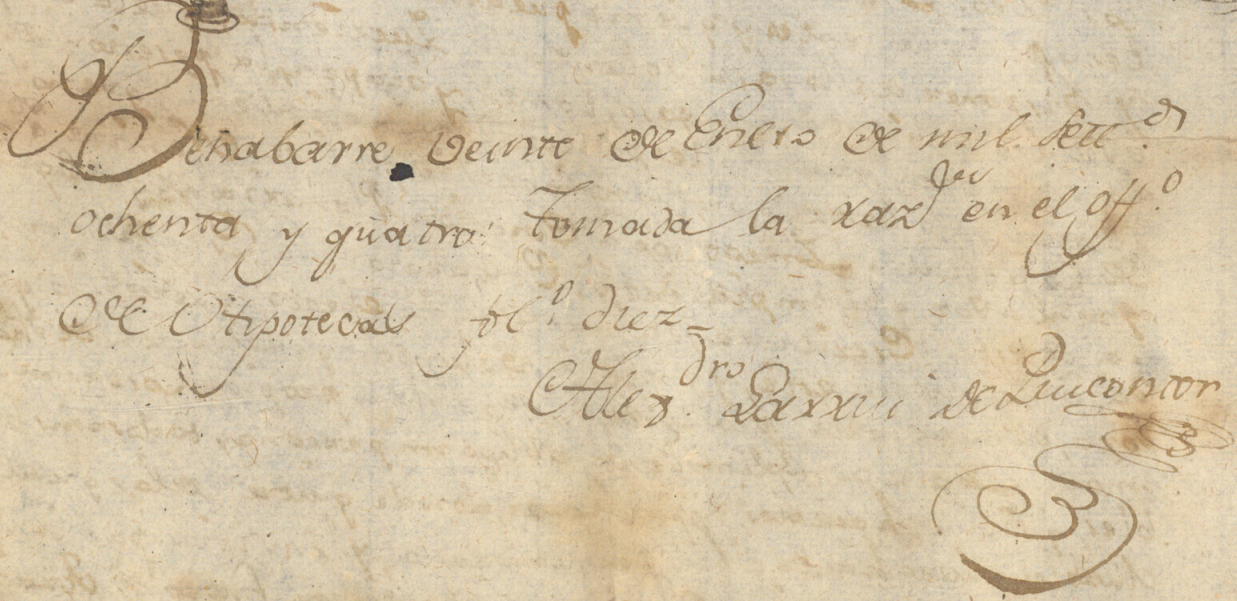 Benabarre veinte de Enero de mil sett.s
ochenta y quatro: Tomada la razon en el off.o
de Hipotecas fol.o diez
Alex.dro de